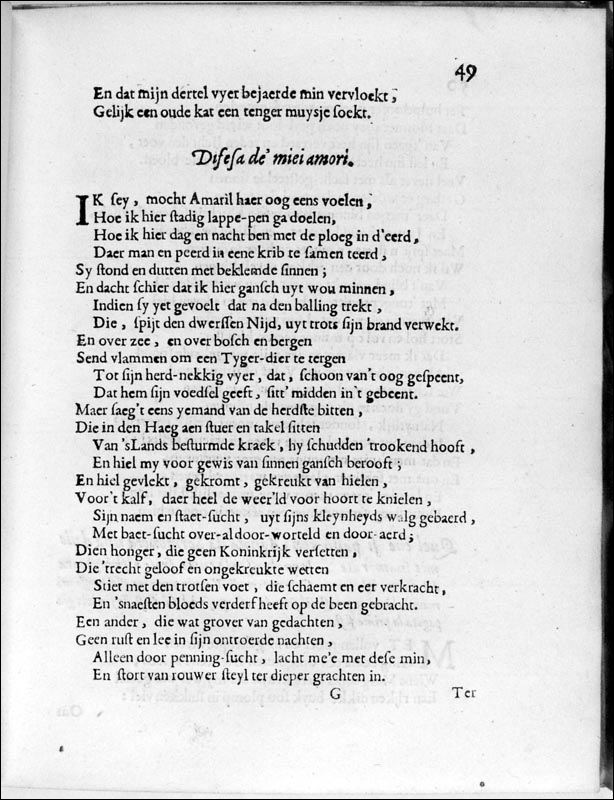 49
En dat mijn dertel vyer bejaerde min vervloekt,
Gelijk een oude kat een tenger muysje soekt.
Difesa de' miei amori.
IK sey, mocht Amaril haer oog eens voelen,
Hoe ik hier stadig lappe-pen ga doelen,
Hoe ik hier dag en nacht ben met de ploeg in d'eerd,
Daer man en peerd in eene krib te samen teerd,
Sy stond en dutten met beklemde sinnen;
En dacht schier dat ik hier gansch uyt wou minnen,
Indien sy yet gevoelt dat na den balling trekt,
Die, spijt den dwerssen Nijd, uyt trots sijn brand verwekt.
En over zee, en over bosch en bergen
Send vlammen om een Tyger-dier te tergen
Tot sijn herd-nekkig vyer, dat, schoon van't oog gespeent,
Dat hem sijn voedsel geeft, sitt' midden in't gebeent.
Maer saeg't eens yemand van de herdste bitten,
Die in den Haeg aen stuer en takel sitten
Van 'sLands besturmde kraek, hy schudden 'trookend hooft,
En hiel my voor gewis van sinnen gansch berooft;
En hiel gevlekt, gekromt, gekreukt van hielen,
Voor't kalf, daer heel de weer'ld voor hoort te knielen,
Sijn naem en staet-sucht, uyt sijns kleynheyds walg gebaerd,
Met baet-sucht over-al door-worteld en door-aerd;
Dien honger, die geen Koninkrijk versetten,
Die 'trecht geloof en ongekreukte wetten
Stiet met den trotsen voet, die schaemt en eer verkracht,
En 'snaesten bloeds verderf heeft op de been gebracht.
Een ander, die wat grover van gedachten,
Geen rust en lee in sijn ontroerde nachten,
Alleen door penning-sucht, lacht me'e met dese min,
En stort van rouwer steyl ter dieper grachten in.
G Ter